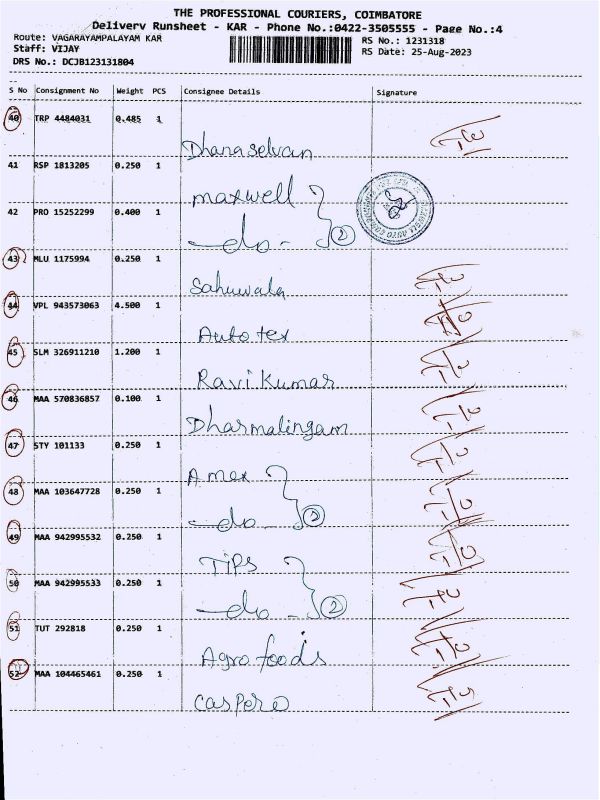 THE PROFESSIONAL COURIERS, COIMBATORE
Delivery Runsheet - KAR - Phone No.:0422-3505555 - Page No.:4
Route: VAGARAYAMPALAYAM KAR
RS No.: 1231318
Staff: VIJAY
RS Date: 25-Aug-2023
DRS No.: DCJB123131804
S No Consignment No Weight PCS Consignee Details Signature
40 TRP 4484031 0.485 1
Dhanaselvan
41 RSP 1813205 0.250 1
maxwell
42 PRO 15252299 0.400 1
-do- 2
43 MLU 1175994 0.250 1
Sahuwala
44 VPL 943573063 4.500 1
Autotex
45 SLM 326911210 1.200 1
Ravi Kumar
46 MAA 570836857 0.100 1
Dharmalingam
47 STY 101133 0.250 1
Amex
48 MAA 103647728 0.250 1
-do- 2
49 MAA 942995532 0.250 1
TIPS
50 MAA 942995533 0.250 1
-do- 2
51 TUT 292818 0.250 1
Agro foods
52 MAA 104465461 0.250 1
caspero